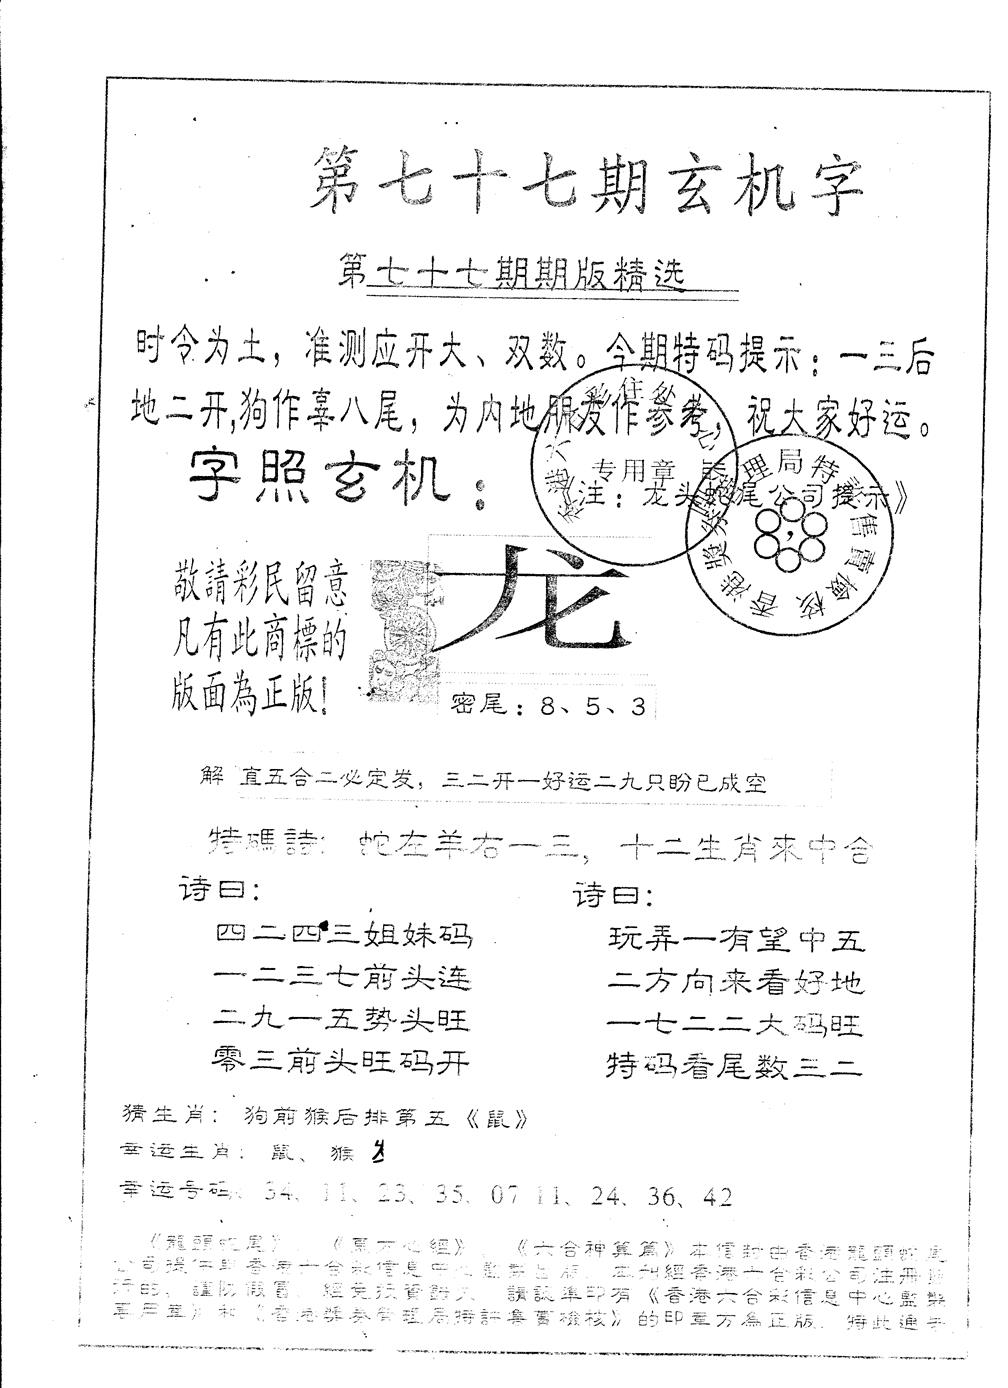 第七十七期玄机字
第七十七期期版精选
时令为土，准测应开大、双数。今期特码提示：一三后
地二开,狗作辜八尾，为内地朋友作参考，祝大家好运。
字照玄机：
注：龙头蛇尾公司提示》
专用章
香港奖券管理局特许售卖檢核
敬請彩民留意
凡有此商標的
版面為正版！
龙
密尾：8、5、3
解 直五合二必定发，三二开一好运二九只盼已成空
特碼詩：蛇左羊右一三，十二生肖來中合
诗曰：
四二四三姐妹码
一二三七前头连
二九一五势头旺
零三前头旺码开
诗曰：
玩弄一有望中五
二方向来看好地
一七二二大码旺
特码看尾数三二
猜生肖：狗前猴后排第五《鼠》
幸运生肖：鼠、猴
幸运号码：34、11、23、35、07 11、24、36、42
《龍頭蛇尾》、《六合神算篇》本信封由香港龍頭蛇尾
公司提供與香港六合彩信息中心監製出版，本刊經香港六合彩公司注冊
行的，謹防假冒，請認準印有《香港六合彩信息中心監製
專用章》和《香港獎券管理局特許售賣檢核》的印章方為正版，特此通告